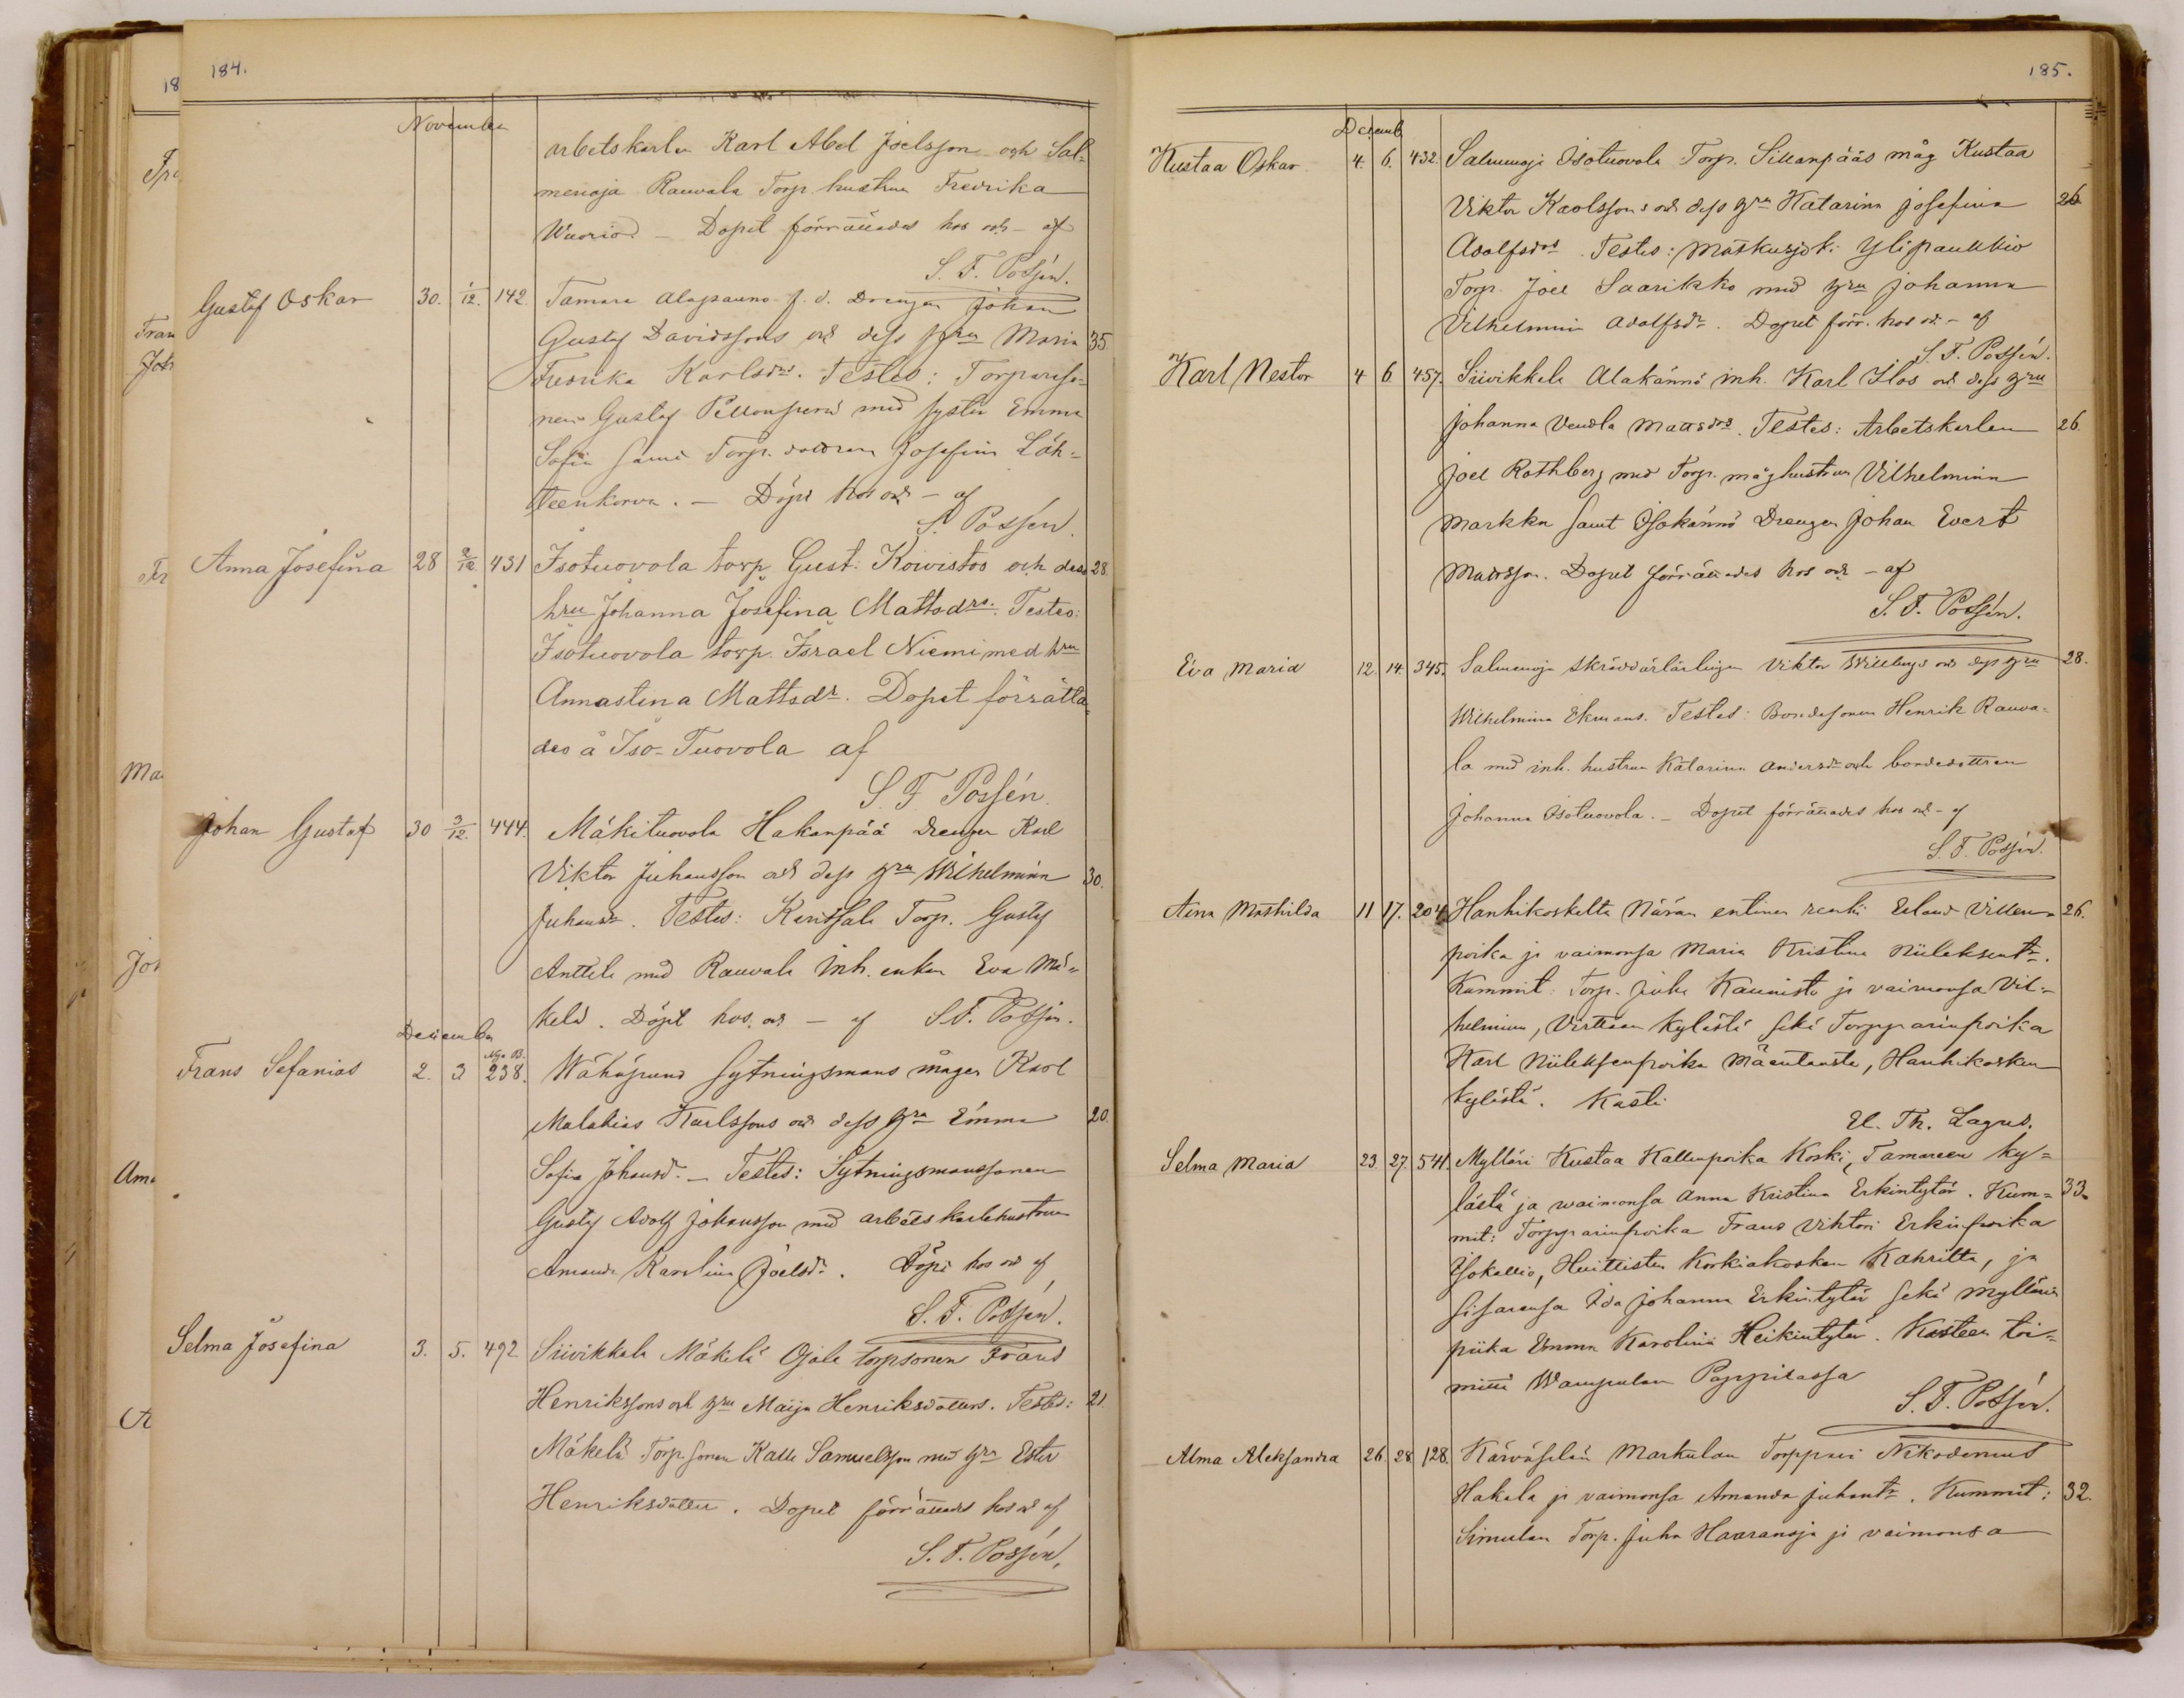 184.
November
arbetskarlen Karl Abel Joelsson och Sal-
menoja Rauvala Torp. hustrun Fredrika
Wuorio. — Dopet förrättades hos och – af
S. F. Possén.
Gustaf Oskar 30. 1/12. 142. Tamare Alapauno f. d. Drengen Johan
Gustaf Davidssons och dess hru Maria 35
Fredrika Karlsdrs. Testes: Torpareso-
nen Gustaf Pillonperä med syster Emma
Sofia samt Torp. dottren Josefina Läh-
teenkorva. — Döpt hos och – af
S. Possén.
Anna Josefina 28 2/12 431 Isotuovola torp. Gust. Koivistos och dess 28.
hru Johanna Josefina Mattsdrs. Testes:
Isotuovola torp. Israel Niemi med hru
Annastina Mattsdr. Dopet förrätta-
des å Iso-Tuovola af
S. F. Possén.
Johan Gustaf 30 3/12. 444. Mäkituovola Hakanpää Drengen Karl
Viktor Juhansson och dess hru Wilhelmina 30.
Juhansdr. Testes: Karitsala Torp. Gustaf
Anttila med Rauvala Inh. enkan Eva Mä-
kelä. Döpt hos och – af S. F. Possén.
December
Nya B.
Frans Sefanias 2. 3 238. Wähäpunu Sytningsmans mågen Karl
Malakias Karlssons och dess hru Emma 20.
Sofia Johansd. — Testes: Sytningsmanssonen
Gustaf Adolf Johansson med arbetskarlshustrun
Amanda Karolina Joelsdr. Döpt hos och af
S. F. Possén.
Selma Josefina 3. 5. 492 Siivikkala Mäkelä Ojala torpsonen Frans
Henrikssons och hru Maija Henriksdotters. Testes: 21.
Mäkelä Torp. sonen Kalle Samuelsson med hru Ester
Henriksdotter. Dopet förrättades hos och af
S. F. Possén.
185.
Decemb
Kustaa Oskar. 4. 6. 432. Salmenoja Isotuovola Torp. Sillanpääs måg Kustaa
Viktor Karlssons och dess hru Katarina Josefina 26
Adolfsdrs. Testes: Matkusjoki Ylipaukkio
Torp. Joel Saarikko med hru Johanna
Vilhelmina Adolfsdr. Dopet förr. hos och – af
S. F. Possén.
Karl Nestor 4 6 457. Siivikkala Alakännö inh. Karl Ilos och dess hru
Johanna Vendla Mattsdrs. Testes: Arbetskarlen 26.
Joel Rothberg med Torp. måghustrun Vilhelmina
Markka samt Isokännö Drengen Johan Evert
Mattsson. Dopet förrättades hos och – af
S. F. Possén.
Eva Maria 12. 14. 345. Salmenoja skräddarlärlingen Viktor Willbergs och dess hru 28.
Wilhelmina Ekmans. Testes: Bondesonen Henrik Rauva-
la med inh. hustrun Katarina Andersdr och bondedottren
Johanna Isotuovola. — Dopet förrättades hos och – af
S. F. Possén.
Aina Mathilda 11 17. 204. Hanhikoskelta Närän entinen renki Erland Villen- 26.
poika ja vaimonsa Maria Kristina Niileksentr.
Kummit: Torp. Juha Kaunisto ja vaimonsa Vil-
helmina, Virttaan kylästä sekä Torpparinpoika
Karl Niileksenpoika Mäentausta, Hanhikosken
kylästä. Kasti
El. Th. Lagus.
Selma Maria 23. 27. 541. Mylläri Kustaa Kallenpoika Koski, Tamareen ky-
lästä ja waimonsa Anna Kristina Erkintytär. Kum- 33.
mit: Torpparinpoika Frans Vihtori Erkinpoika
Isokallio, Huittisten Korkiakosken Kahrilta, ja
sisarensa Ida Johanna Erkintytär sekä Myllärin
piika Emma Karolina Heikintytär. Kasteen toi-
mitti Wampulan Pappilassa
S. F. Possén.
Alma Aleksandra 26. 28. 128. Kärväselän Markulan Torppari Nikodemus
Hakala ja vaimonsa Amanda Juhantr. Kummit: 32.
Simulan Torp. Juha Haaranoja ja vaimonsa